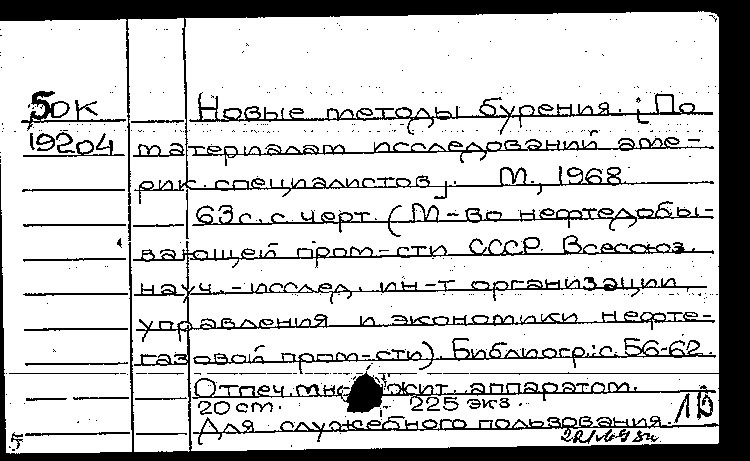 5ок
19204
Новые методы бурения. [По
материалам исследований аме-
рик. специалистов]. М., 1968
63с. с черт. (М-во нефтедобы-
вающей пром-сти СССР. Всесоюз.
науч.-исслед. ин-т организации,
управления и экономики нефте-
газовой пром-сти). Библиогр.: с. 56-62.
Отпеч. множит. аппаратом.
20 cm. 225 экз.
Для служебного пользования.
1
5